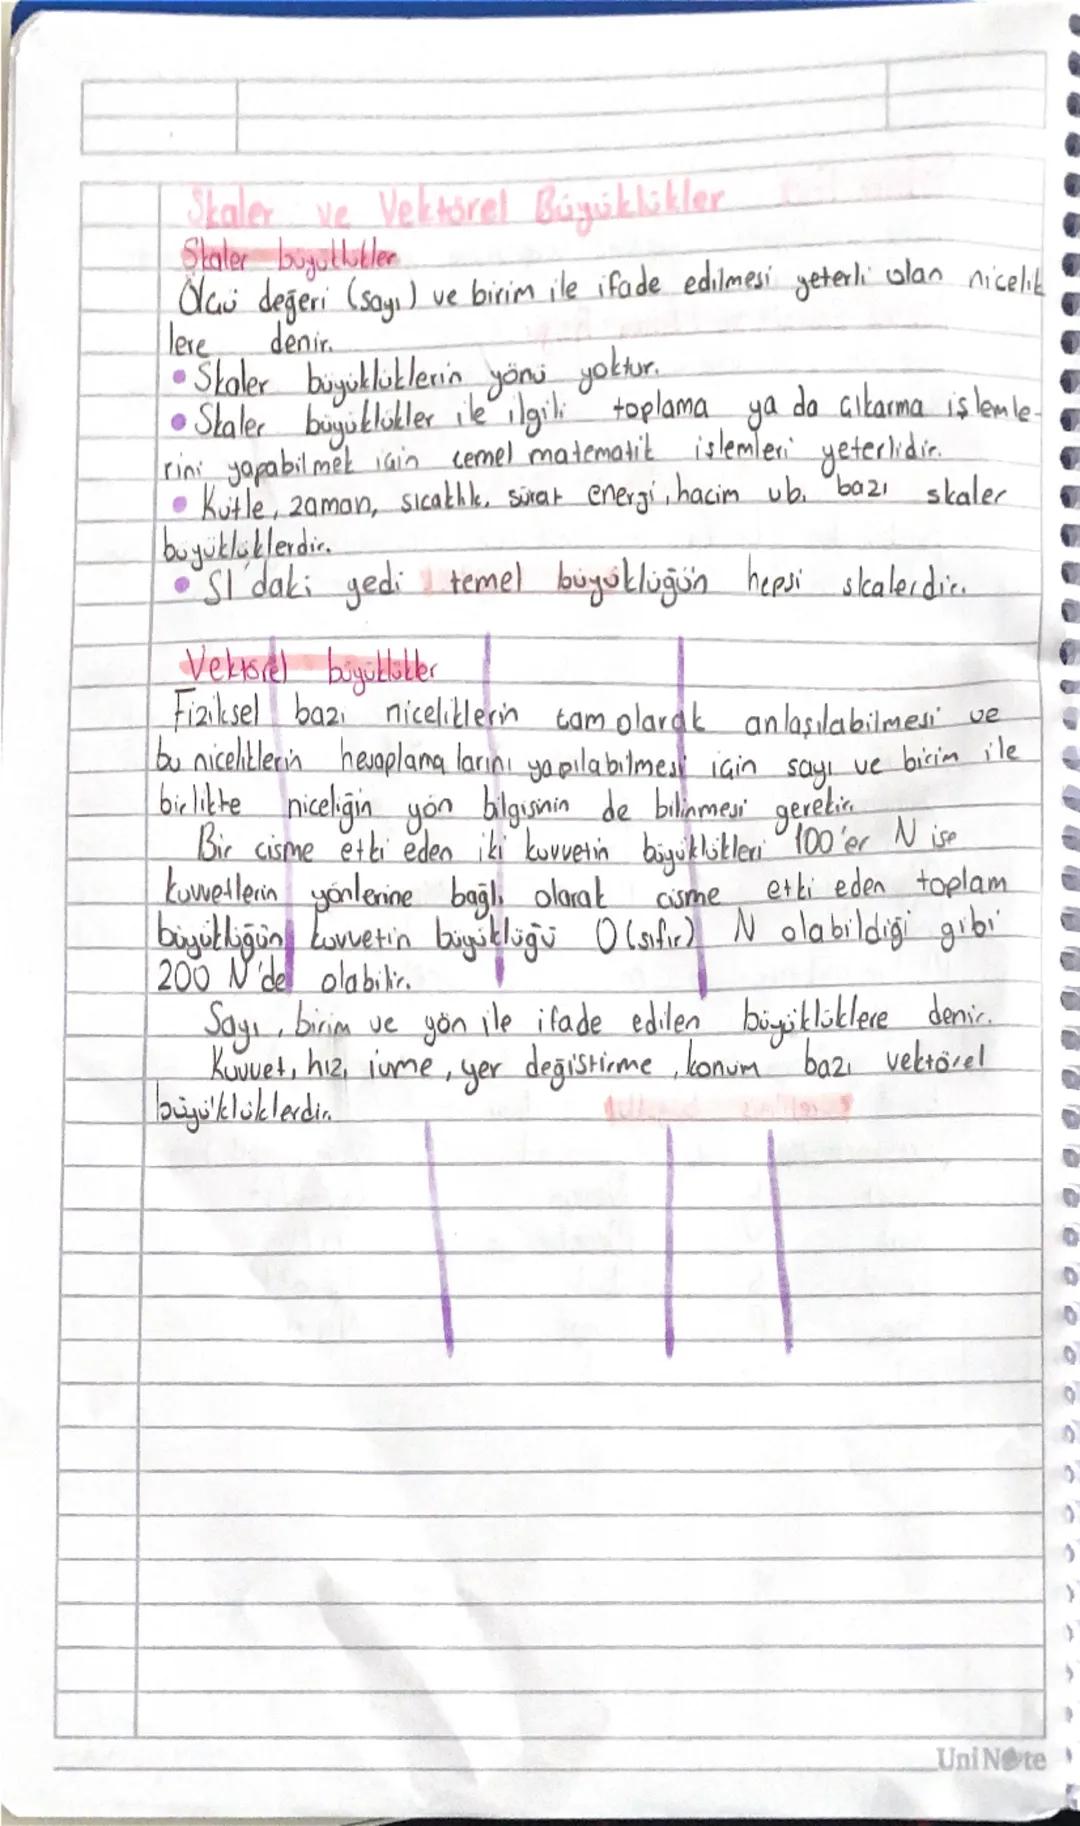 Skaler ve Vektörel Büyüklükler
Skaler büyüklükler
Ölçü değeri (sayı) ve birim ile ifade edilmesi yeterli olan nicelik
lere denir.
• Skaler büyüklüklerin yönü yoktur.
• Skaler büyüklükler ile ilgili toplama ya da çıkarma işlemle-
rini yapabilmek için temel matematik işlemleri yeterlidir.
• Kütle, zaman, sıcaklık, sürat enerji, hacim vb. bazı skaler
büyüklüklerdir.
• SI'daki yedi temel büyüklüğün hepsi skalerdir.
Vektörel büyüklükler
Fiziksel bazı niceliklerin tam olarak anlaşılabilmesi ve
bu niceliklerin hesaplama larını yapılabilmesi için sayı ve birim ile
birlikte niceliğin yön bilgisinin de bilinmesi gerekir.
Bir cisme etki eden iki kuvvetin büyüklükleri 100'er N ise
kuvvetlerin yönlerine bağlı olarak cisme etki eden toplam
büyüklüğün kuvvetin büyüklüğü 0 (sıfır) N olabildiği gibi
200 N'de olabilir.
Sayı, birim ve yön ile ifade edilen büyüklüklere denir.
Kuvvet, hız, ivme, yer değiştirme, konum bazı vektörel
büyüklüklerdir.
UniNote